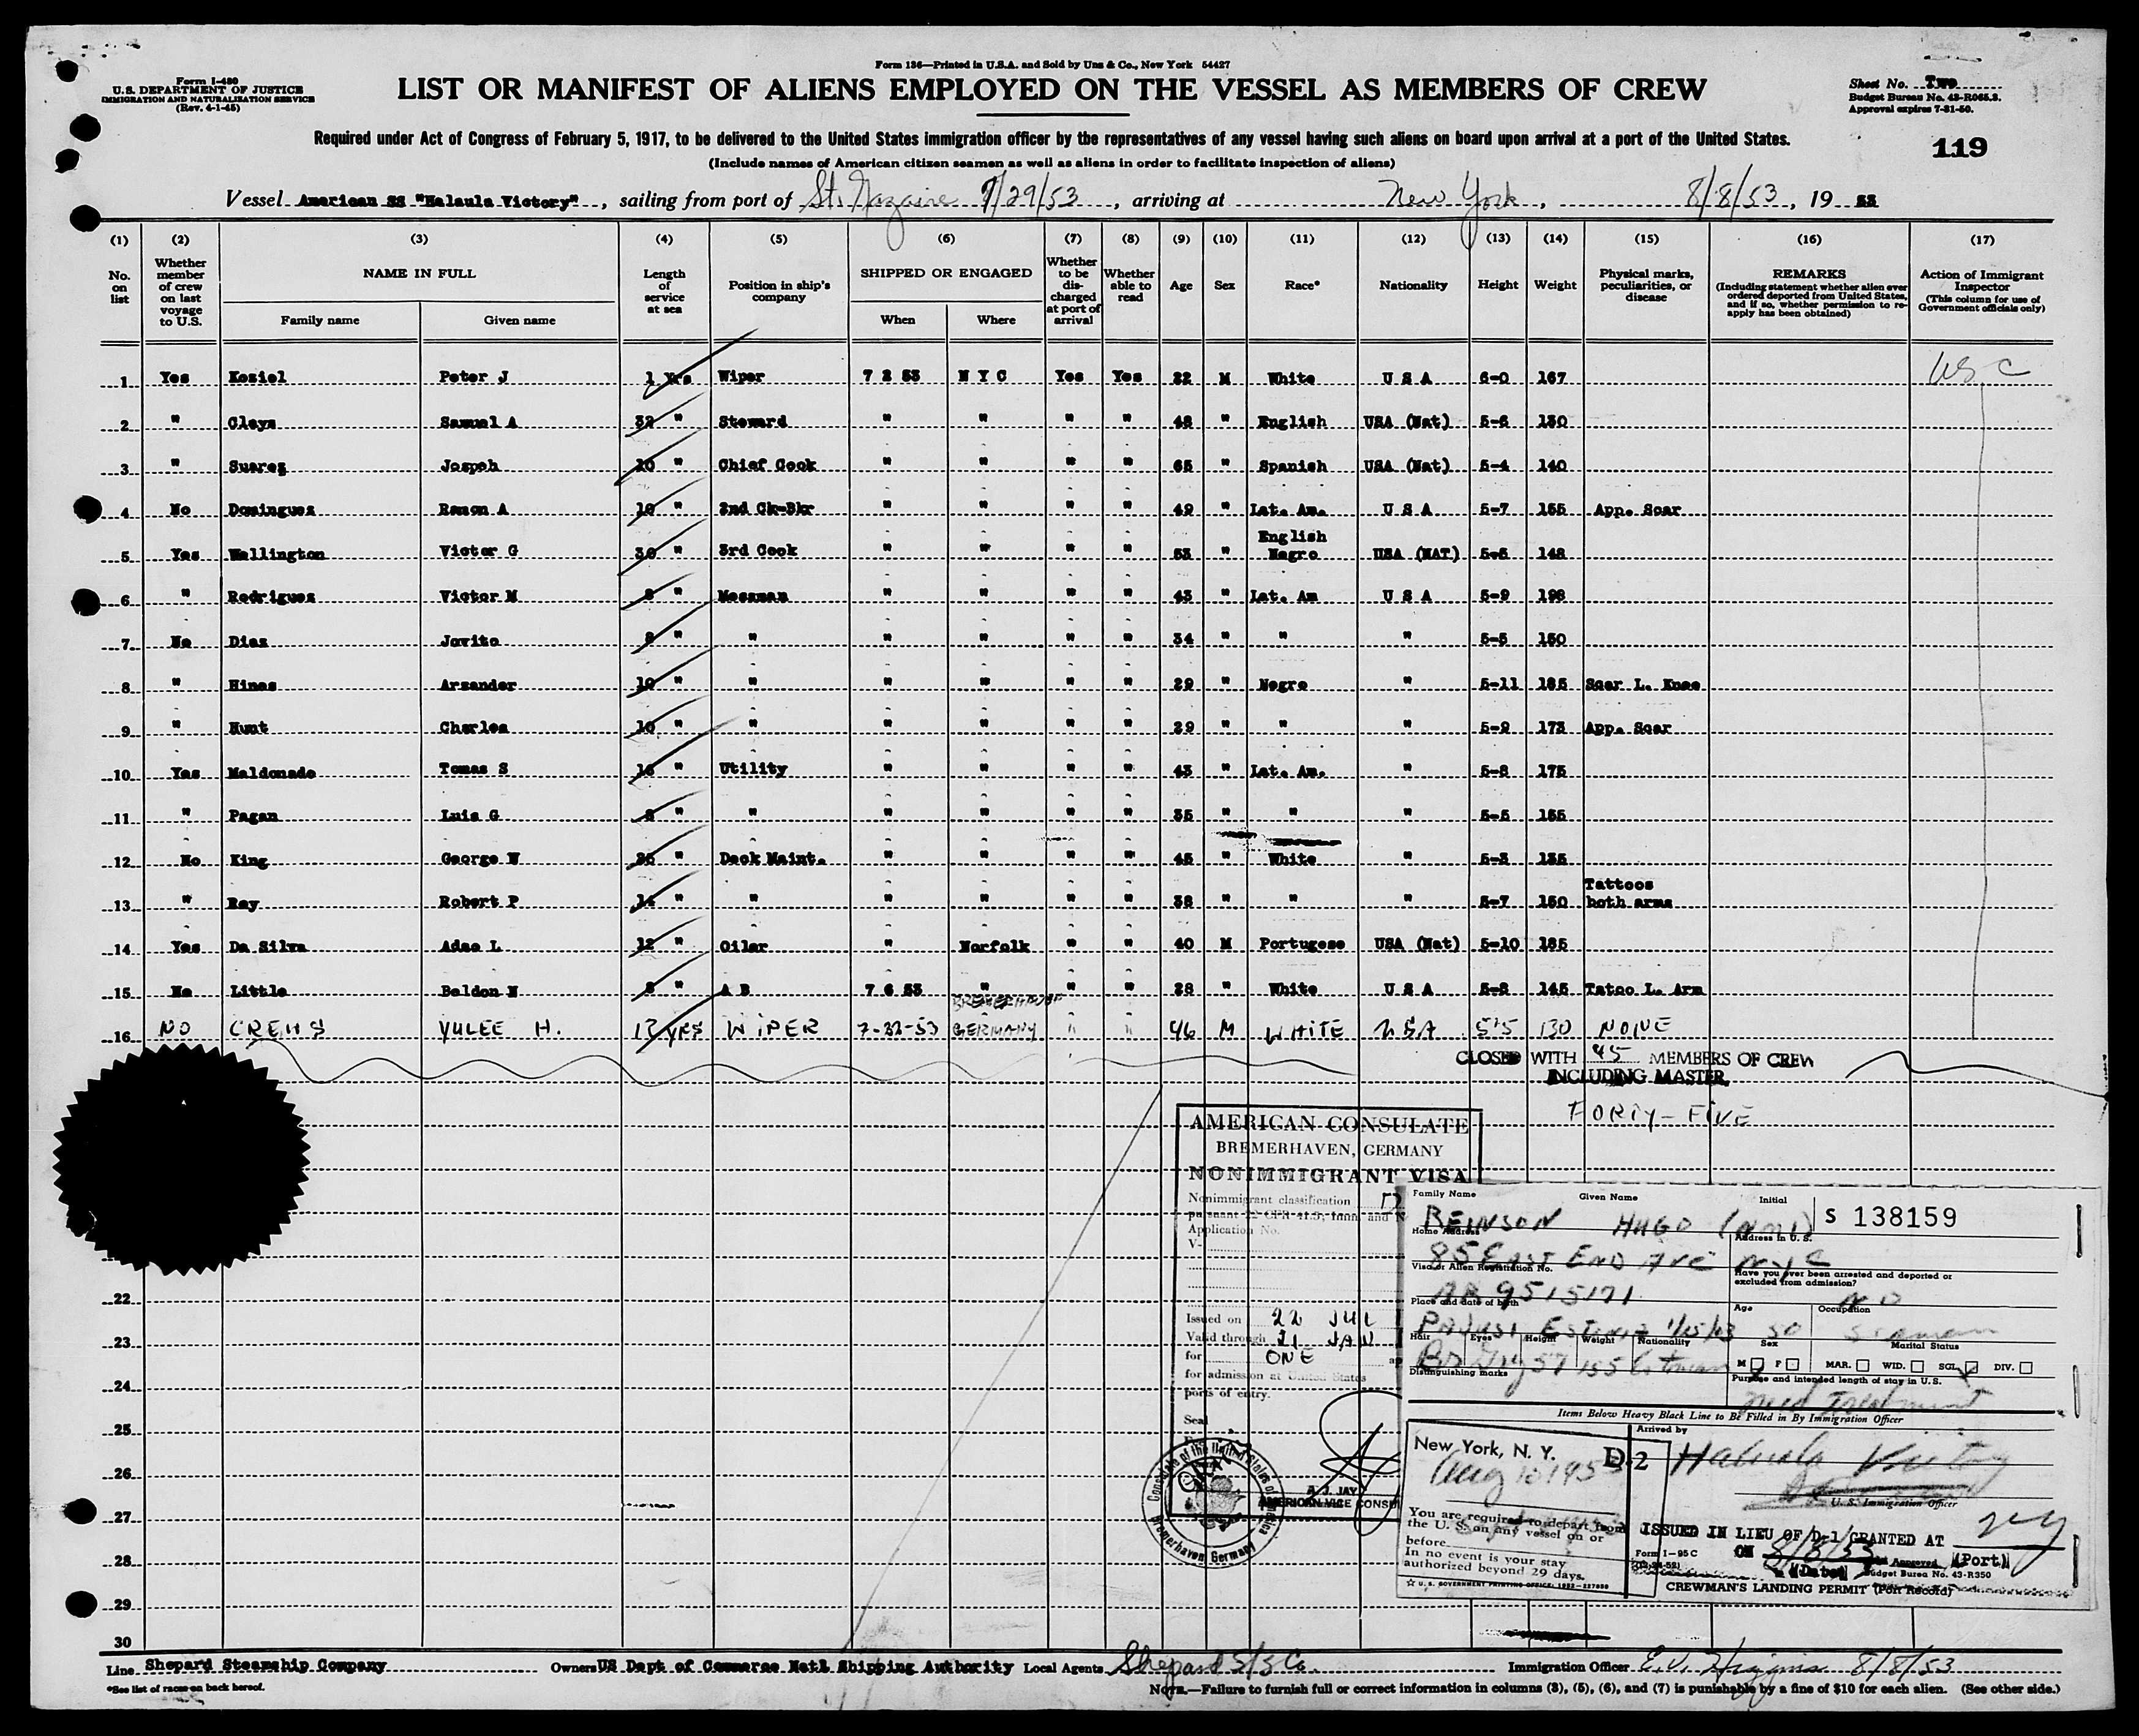 Form I-480
U.S. DEPARTMENT OF JUSTICE
IMMIGRATION AND NATURALIZATION SERVICE
(Rev. 4-1-45)
Form 136—Printed in U.S.A. and Sold by Unz & Co., New York 54427
LIST OR MANIFEST OF ALIENS EMPLOYED ON THE VESSEL AS MEMBERS OF CREW
Sheet No. Two
Budget Bureau No. 43-R065.3.
Approval expires 7-31-50.
119
Required under Act of Congress of February 5, 1917, to be delivered to the United States immigration officer by the representatives of any vessel having such aliens on board upon arrival at a port of the United States.
(Include names of American citizen seamen as well as aliens in order to facilitate inspection of aliens)
Vessel American SS "Halaula Victory", sailing from port of St. Nazaire 7/29/53, arriving at New York, 8/8/53, 19 53
(1) (2) (3) (4) (5) (6) (7) (8) (9) (10) (11) (12) (13) (14) (15) (16) (17)
No. on list
Whether member of crew on last voyage to U.S.
NAME IN FULL
Family name Given name
Length of service at sea
Position in ship's company
SHIPPED OR ENGAGED
When Where
Whether to be discharged at port of arrival
Whether able to read
Age Sex Race* Nationality Height Weight
Physical marks, peculiarities, or disease
REMARKS
(Including statement whether alien ever ordered deported from United States, and if so, whether permission to reapply has been obtained)
Action of Immigrant Inspector
(This column for use of Government officials only)
1 Yes Koziel Peter J 1 Yrs Wiper 7 2 53 N Y C Yes Yes 22 M White U S A 6-0 167 USC
2 " Cleys Samuel A 32 " Steward " " " " 48 " English USA (Nat) 5-6 130
3 " Suarez Jospeh 20 " Chief Cook " " " " 65 " Spanish USA (Nat) 5-4 140
4 No Dominguez Ramon A 10 " 2nd Ck-Bkr " " " " 49 " Lat. Am. U S A 5-7 155 App. Scar
5 Yes Wallington Victor G 30 " 3rd Cook " " " " 53 " English Negro USA (NAT) 5-5 148
6 " Rodriguez Victor M 8 " Messman " " " " 43 " Lat. Am U S A 5-9 198
7 No Diaz Jovito 8 " " " " " " 34 " " " 5-5 150
8 " Hines Arzander 10 " " " " " " 29 " Negro " 5-11 185 Scar L. Knee
9 " Hunt Charles 10 " " " " " " 29 " " " 5-9 173 App. Scar
10 Yes Maldonado Tomas S 15 " Utility " " " " 43 " Lat. Am. " 5-8 175
11 " Pagan Luis G 8 " " " " " " 35 " " " 5-5 155
12 No King George W 26 " Deck Maint. " " " " 45 " White " 5-3 135
13 " Ray Robert P 14 " " " " " " 38 " " " 5-7 150 Tattoos both arms
14 Yes Da Silva Adao L 12 " Oiler " Norfolk " " 40 M Portugese USA (Nat) 5-10 185
15 No Little Beldon N 8 " A B 7 6 53 " " " 28 " White U S A 5-8 145 Tatoo L. Arm
16 NO CREWS YULEE H. 13 YRS WIPER 7-22-53 BREMERHAVEN GERMANY " " 46 M WHITE USA 5'5 130 NONE
CLOSED WITH 45 MEMBERS OF CREW
INCLUDING MASTER
FORTY-FIVE
AMERICAN CONSULATE
BREMERHAVEN, GERMANY
NONIMMIGRANT VISA
Nonimmigrant classification D
pursuant 22 CFR 41.5, Imm. and N
Application No.
V-
Issued on 22 JUL
Valid through 21 JAN
for ONE
for admission at United States
ports of entry.
Seal
Consulate of the United States of America
Bremerhaven Germany
A. J. JAY
AMERICAN VICE CONSUL
Family Name Given Name Initial
REINSON HUGO (NMI) S 138159
Home Address Address in U.S.
85 East End Ave NYC
Visa or Alien Registration No.
AR 9515171
Have you ever been arrested and deported or excluded from admission?
NO
Place and date of birth Age Occupation
Estonia 1/15/03 50 Seaman
Hair Eyes Height Weight Nationality Sex Marital Status
57 155 Estonian M F MAR. WID. SGL. DIV.
Distinguishing marks
Purpose and intended length of stay in U.S.
Med Treatment
Items Below Heavy Black Line to Be Filled in By Immigration Officer
New York, N. Y. D-2
Aug 10 1953
Arrived by
Halaula Victory
U. S. Immigration Officer
You are required to depart from
the U. S. on any vessel on or
before
In no event is your stay
authorized beyond 29 days.
☆ U. S. GOVERNMENT PRINTING OFFICE: 1952—227050
ISSUED IN LIEU OF D-1 GRANTED AT NY
ON 8/8/53 (Port)
(Date)
Form I-95C
Approved
Budget Bureau No. 43-R350
CREWMAN'S LANDING PERMIT (Port Record)
22
23
24
25
26
27
28
29
30
Line Shepard Steamship Company Owners US Dept of Commerce Nat'l Shipping Authority Local Agents Shepard S/S Co. Immigration Officer E.V. Higgins 8/8/53
*See list of races on back hereof.
NOTE.—Failure to furnish full or correct information in columns (3), (5), (6), and (7) is punishable by a fine of $10 for each alien. (See other side.)